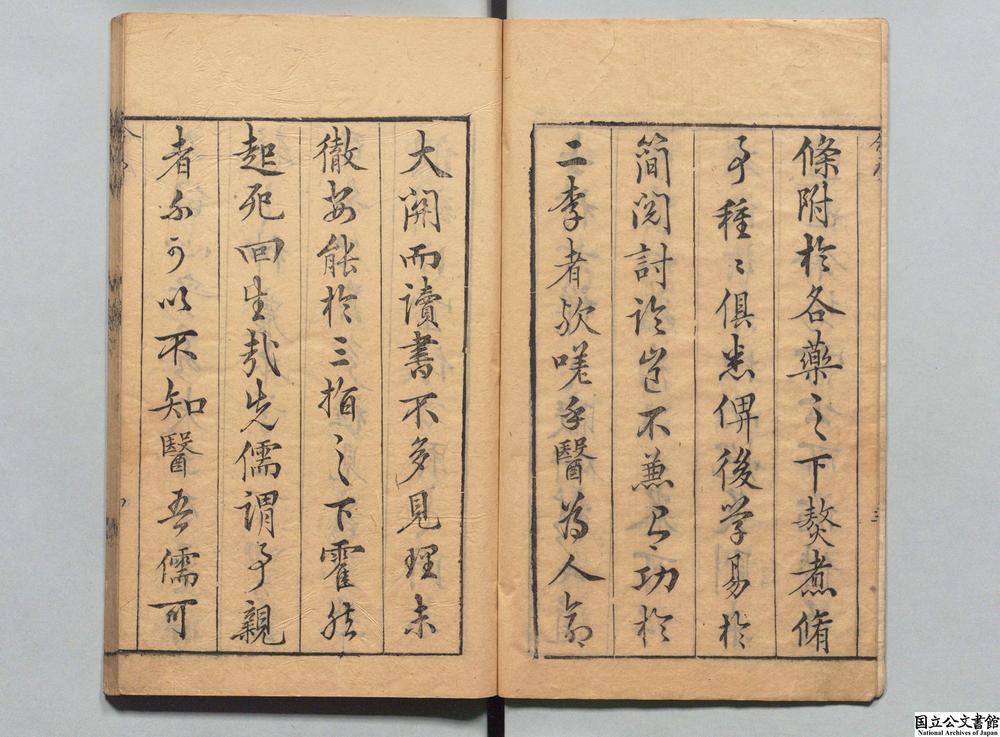 條附於各藥之下熬煮脩
事種〻俱悉俾後学易於
簡閱討論豈不兼有功於
二李者欤嗟乎醫為人命
大開而讀書不多見理未
徹安能於三指之下霍然
起死回生哉先儒謂事親
者不可以不知醫吾儒可
国立公文書館
National Archives of Japan